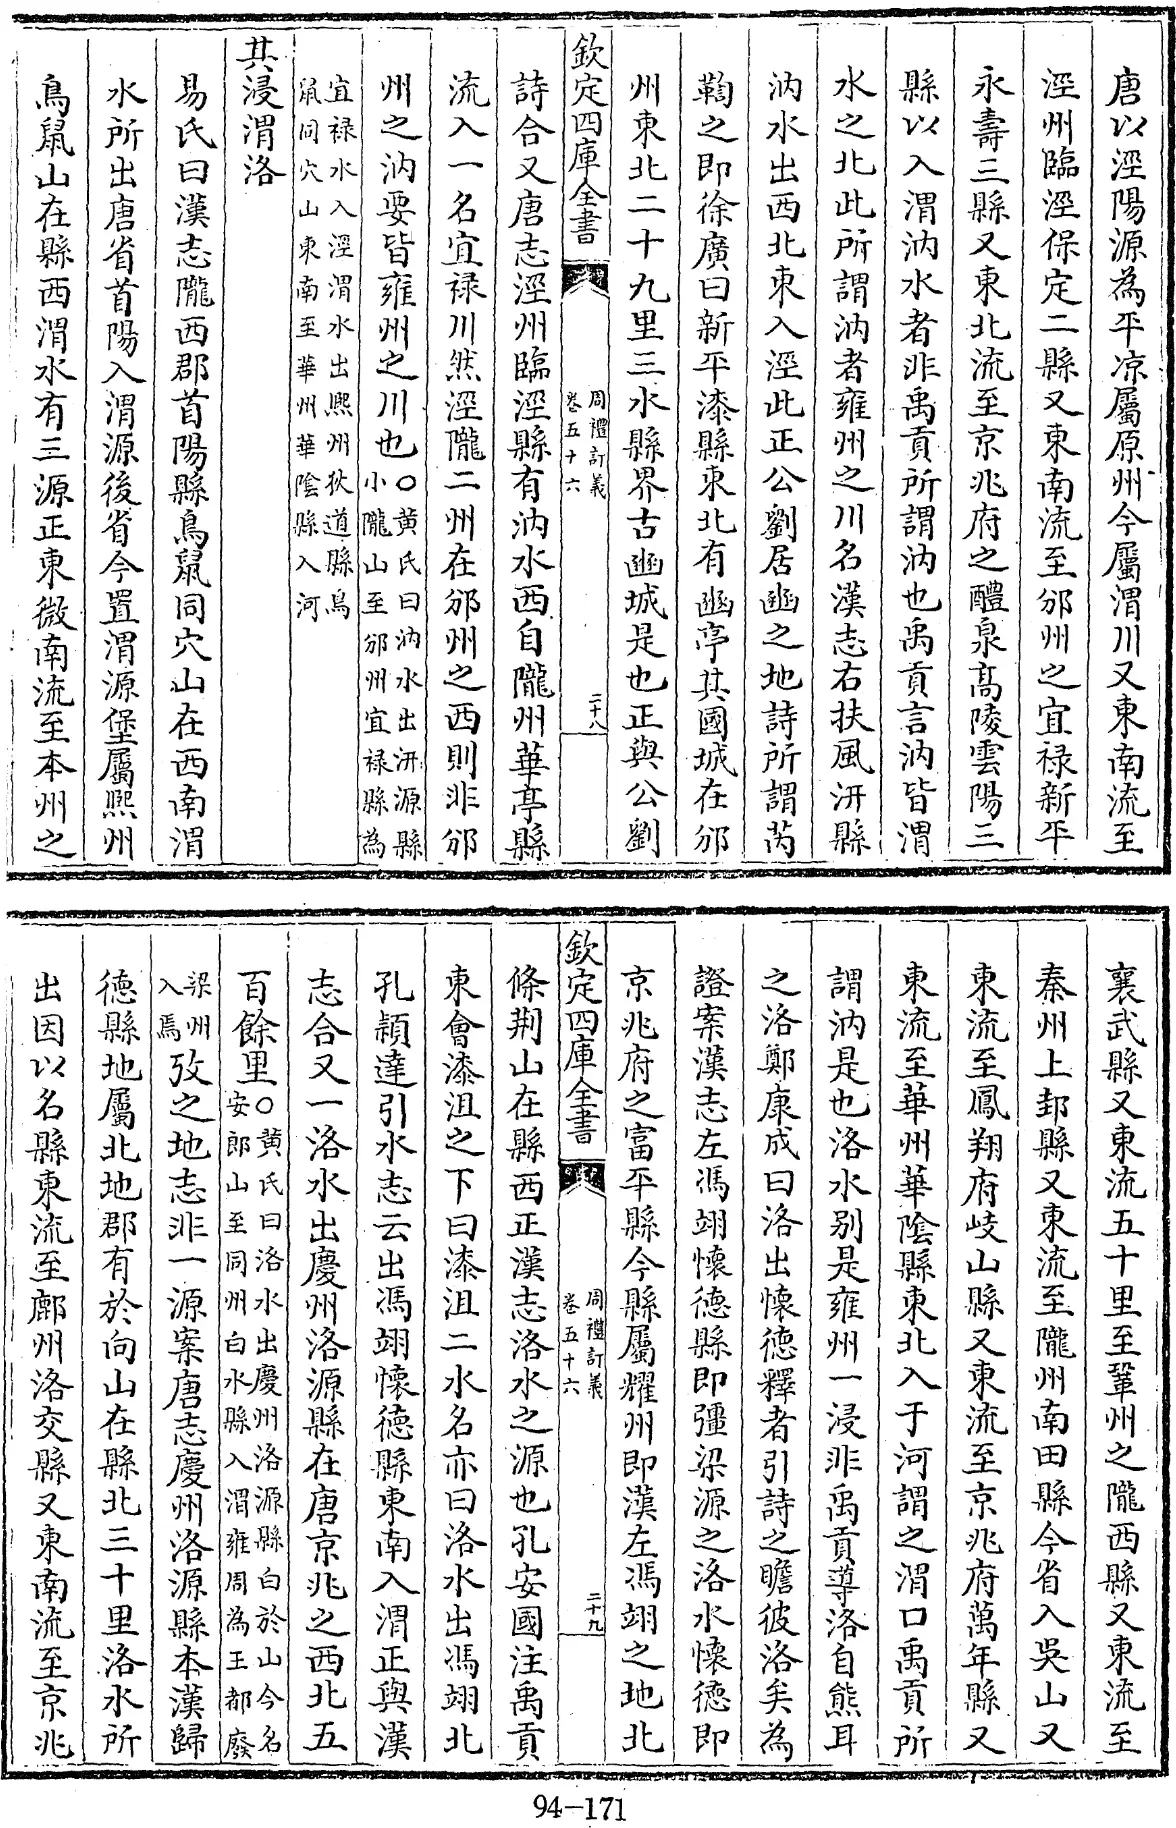 唐以涇陽源為平凉屬原州今屬渭川又東南流至
涇州臨涇保定二縣又東南流至邠州之宜禄新平
永壽三縣又東北流至京兆府之醴泉髙陵雲陽三
縣以入渭汭水者非禹貢所謂汭也禹貢言汭皆渭
水之北此所謂汭者雍州之川名漢志右扶風汧縣
汭水出西北東入涇此正公劉居豳之地詩所謂芮
鞫之即徐廣曰新平漆縣東北有豳亭其國城在邠
州東北二十九里三水縣界古豳城是也正與公劉
欽定四庫全書
周禮訂義
卷五十六
二十八
詩合又唐志涇州臨涇縣有汭水西自隴州華亭縣
流入一名宜禄川然涇隴二州在邠州之西則非邠
州之汭要皆雍州之川也○黄氏曰汭水出汧源縣
小隴山至邠州宜禄縣為
宜禄水入涇渭水出熈州狄道縣鳥
鼠同穴山東南至華州華陰縣入河
其浸渭洛
易氏曰漢志隴西郡首陽縣鳥鼠同穴山在西南渭
水所出唐省首陽入渭源後省今置渭源堡屬熈州
鳥鼠山在縣西渭水有三源正東微南流至本州之
襄武縣又東流五十里至鞏州之隴西縣又東流至
秦州上邽縣又東流至隴州南田縣今省入吳山又
東流至鳳翔府岐山縣又東流至京兆府萬年縣又
東流至華州華陰縣東北入于河謂之渭口禹貢所
謂汭是也洛水别是雍州一浸非禹貢導洛自熊耳
之洛鄭康成曰洛出懐徳釋者引詩之瞻彼洛矣為
證案漢志左馮翊懐徳縣即彊梁源之洛水懐徳即
京兆府之富平縣今縣屬耀州即漢左馮翊之地北
欽定四庫全書
周禮訂義
卷五十六
二十九
條荆山在縣西正漢志洛水之源也孔安國注禹貢
東會漆沮之下曰漆沮二水名亦曰洛水出馮翊北
孔頴達引水志云出馮翊懐徳縣東南入渭正與漢
志合又一洛水出慶州洛源縣在唐京兆之西北五
百餘里○黄氏曰洛水出慶州洛源縣白於山今名
安郎山至同州白水縣入渭雍周為王都廢
梁州
入焉攷之地志非一源案唐志慶州洛源縣本漢歸
徳縣地屬北地郡有於向山在縣北三十里洛水所
出因以名縣東流至鄜州洛交縣又東南流至京兆
94-171